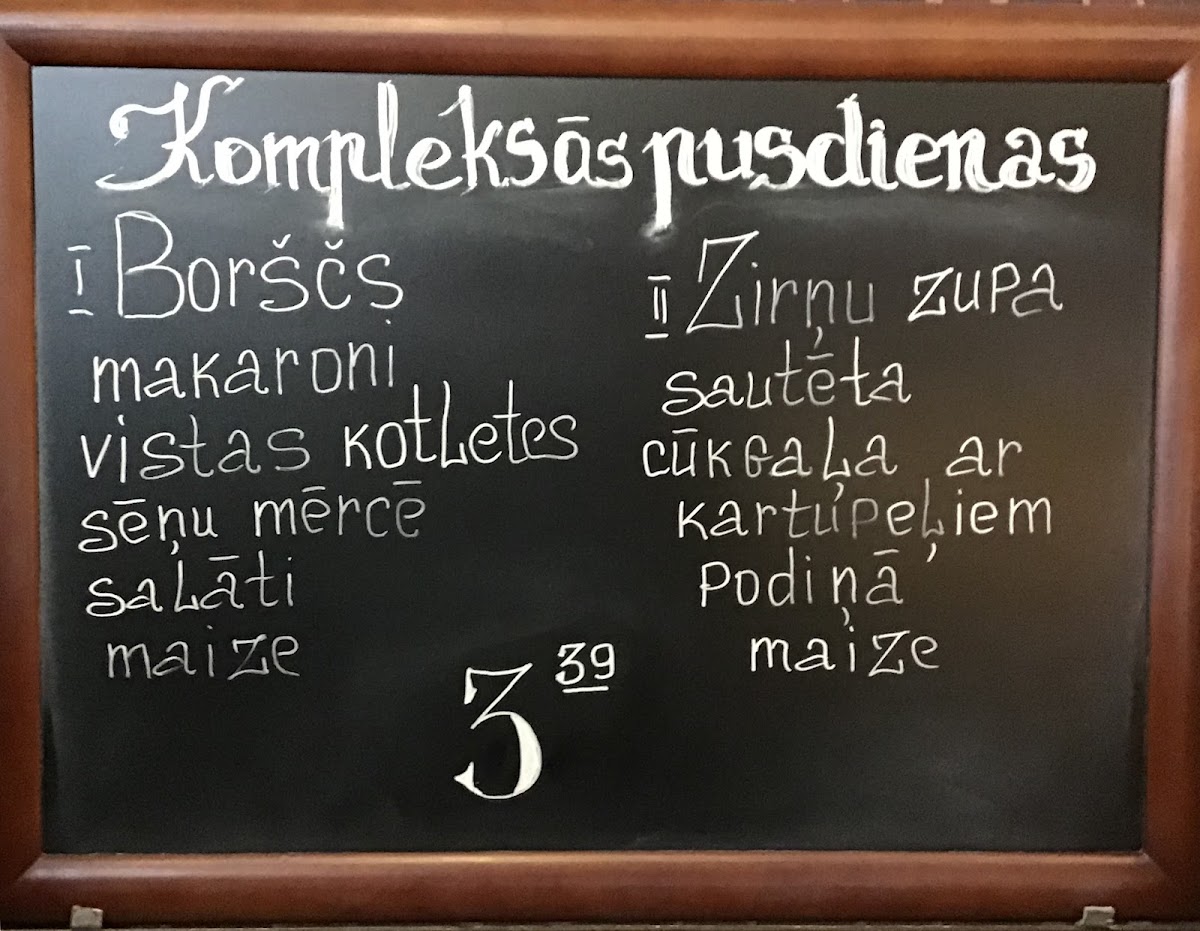 Kompleksās pusdienas
I Borščs
makaroni
vistas kotletes
sēņu mērcē
salāti
maize
II Zirņu zupa
sautēta
cūkgaļa ar
kartupeļiem
podiņā
maize
3 39